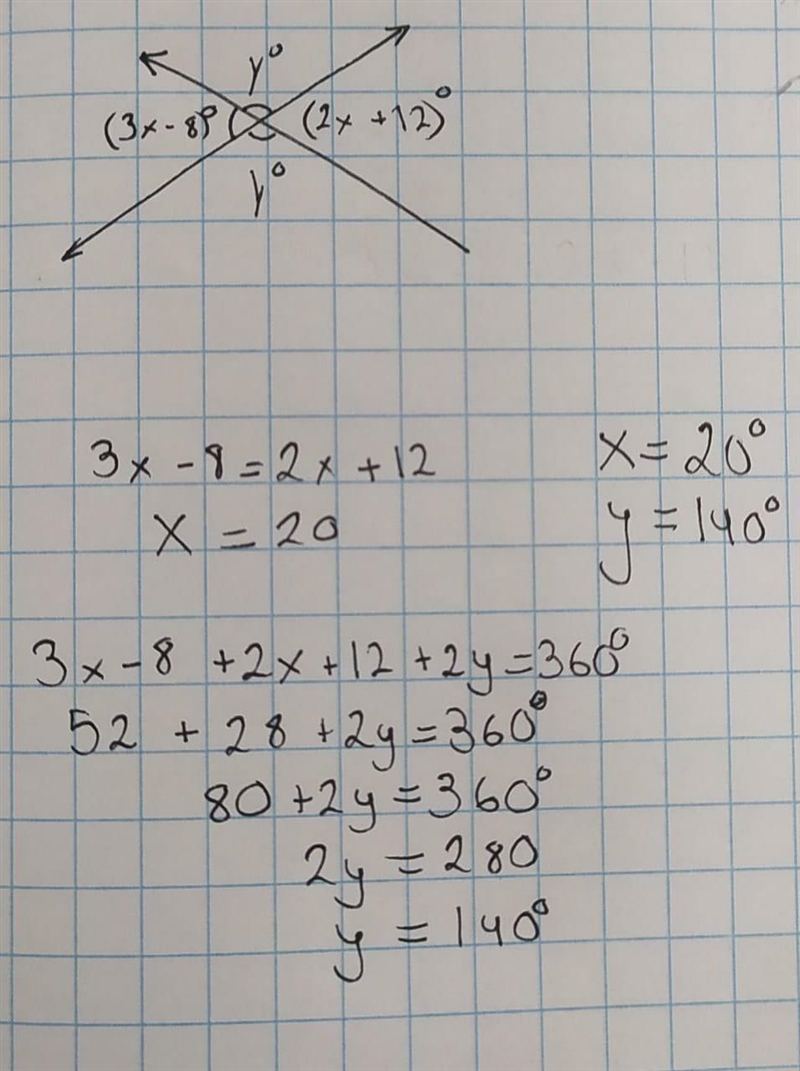 y°
(3x-8)° (2x+12)°
y°
3x-8=2x+12
x=20
x=20°
y=140°
3x-8+2x+12+2y=360°
52+28+2y=360°
80+2y=360°
2y=280
y=140°